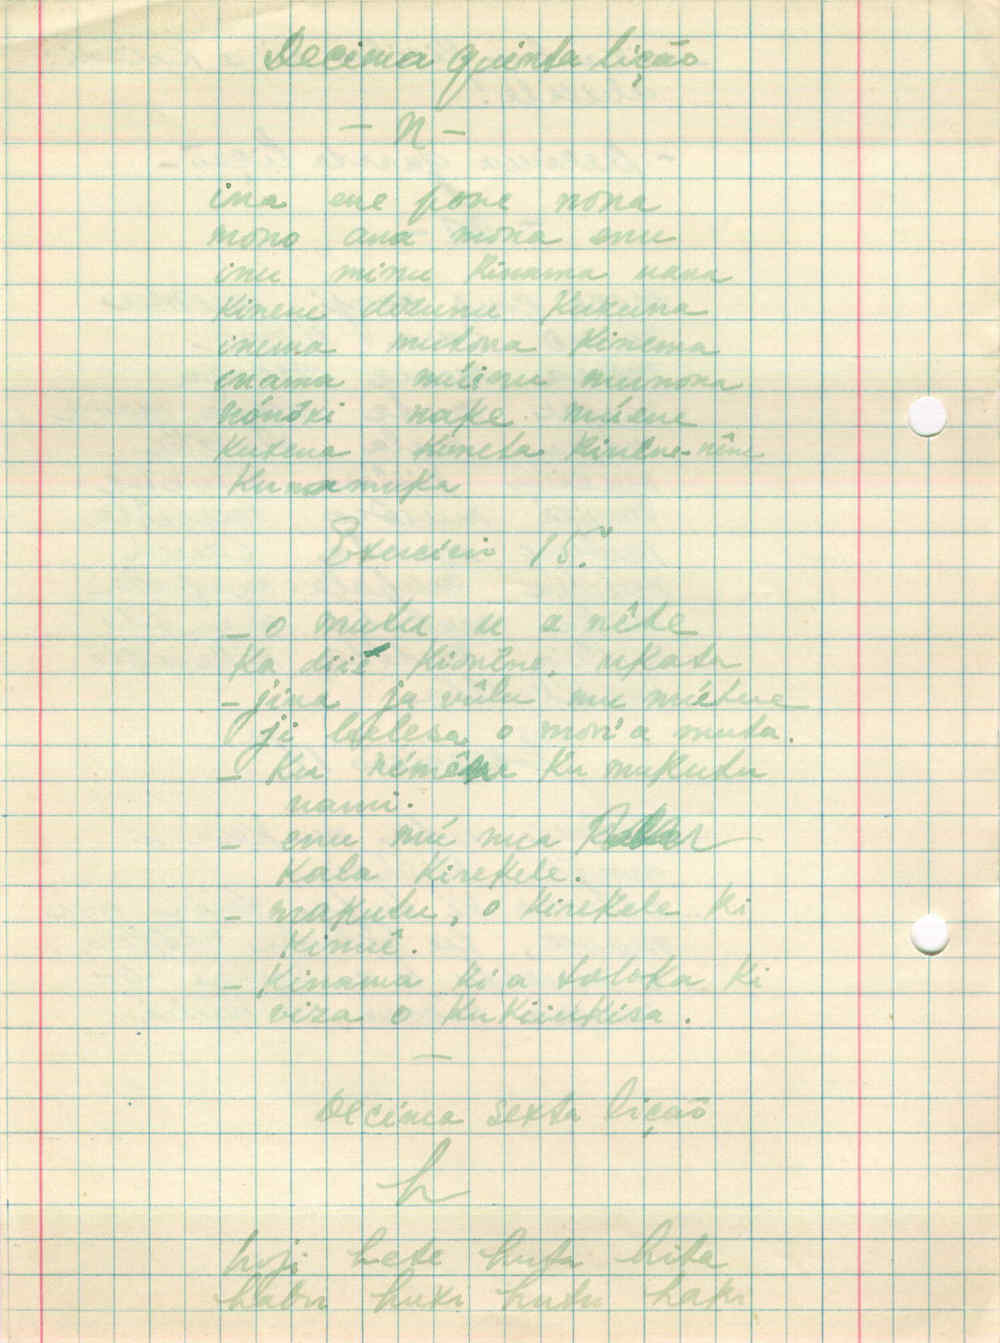 Decima quinta lição
- n -
ina ene pone nona
mono ana mona enu
inu minu Kinama nana
Kinene dizunu Kukuna
inema mutona Kinema
enama muinu munona
nónóxi nake músene
Kutena Kuneta Kiulne-nêne
Kunamuka
Exercicio 15.º
- o mutu u a nête
Ka diiê Kionêne, ukata
- jina ja vûlu mu
ji latesa o mon'a muta.
- Ku Ku mukutu
nami.
- enu mú mua
Kala Kirekele.
- makutu, o Kirekele Ki
Kimuê.
- Kinama Ki a toloka Ki
viza o KuKiiukisa.
—
Decima sexta lição
h
hoji hete huta hita
habu huxi hutu haku